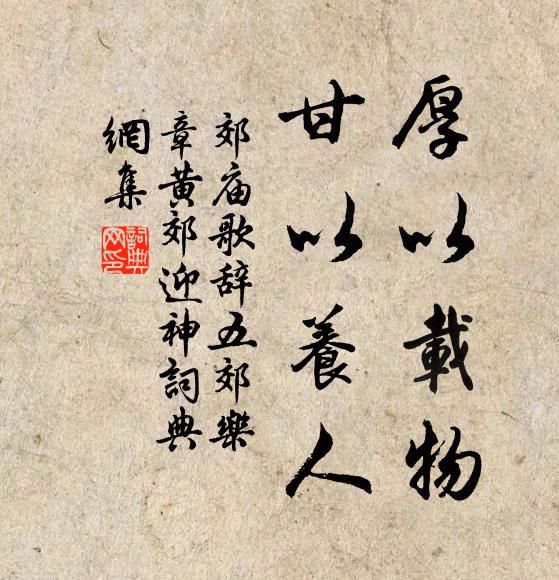 厚以載物
甘以養人
郊庙歌辞五郊樂
章黃郊迎神詞典
網集
詞典
网印